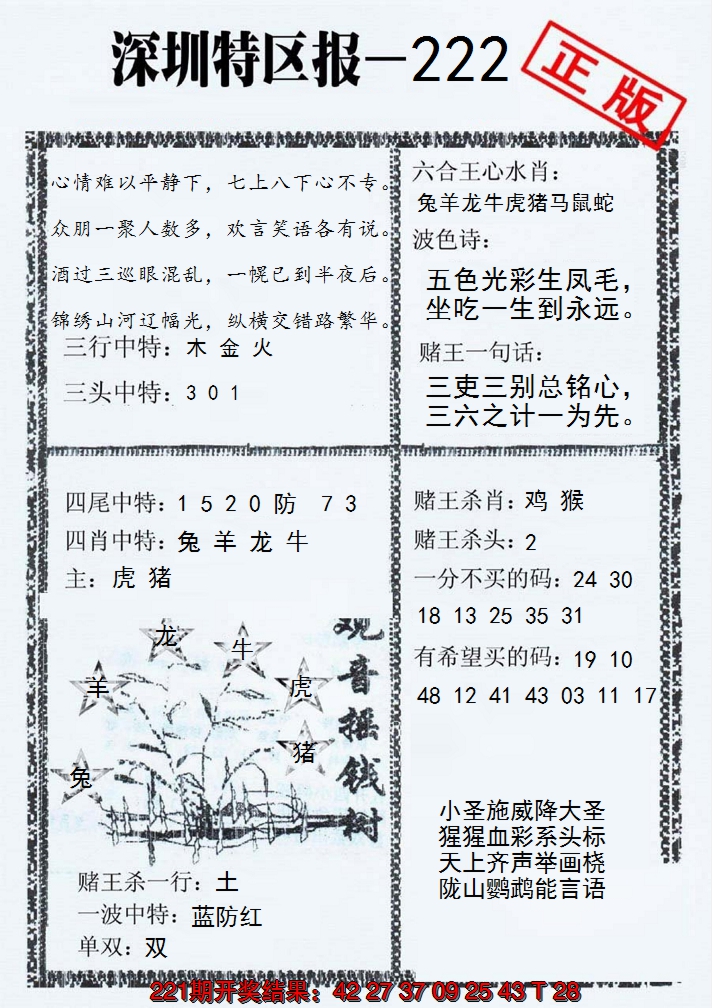 深圳特区报—222
正版
心情难以平静下，七上八下心不专。
众朋一聚人数多，欢言笑语各有说。
酒过三巡眼混乱，一幌已到半夜后。
锦绣山河辽幅光，纵横交错路繁华。
三行中特：木 金 火
三头中特：3 0 1
六合王心水肖：
兔羊龙牛虎猪马鼠蛇
波色诗：
五色光彩生凤毛，
坐吃一生到永远。
赌王一句话：
三吏三别总铭心，
三六之计一为先。
四尾中特：1 5 2 0 防 7 3
四肖中特：兔 羊 龙 牛
主：虎 猪
龙
牛
羊
虎
猪
兔
观音摇钱树
赌王杀一行：土
一波中特：蓝防红
单双：双
赌王杀肖：鸡 猴
赌王杀头：2
一分不买的码：24 30
18 13 25 35 31
有希望买的码：19 10
48 12 41 43 03 11 17
小圣施威降大圣
猩猩血彩系头标
天上齐声举画桡
陇山鹦鹉能言语
221期开奖结果：42 27 37 09 25 43 T 28